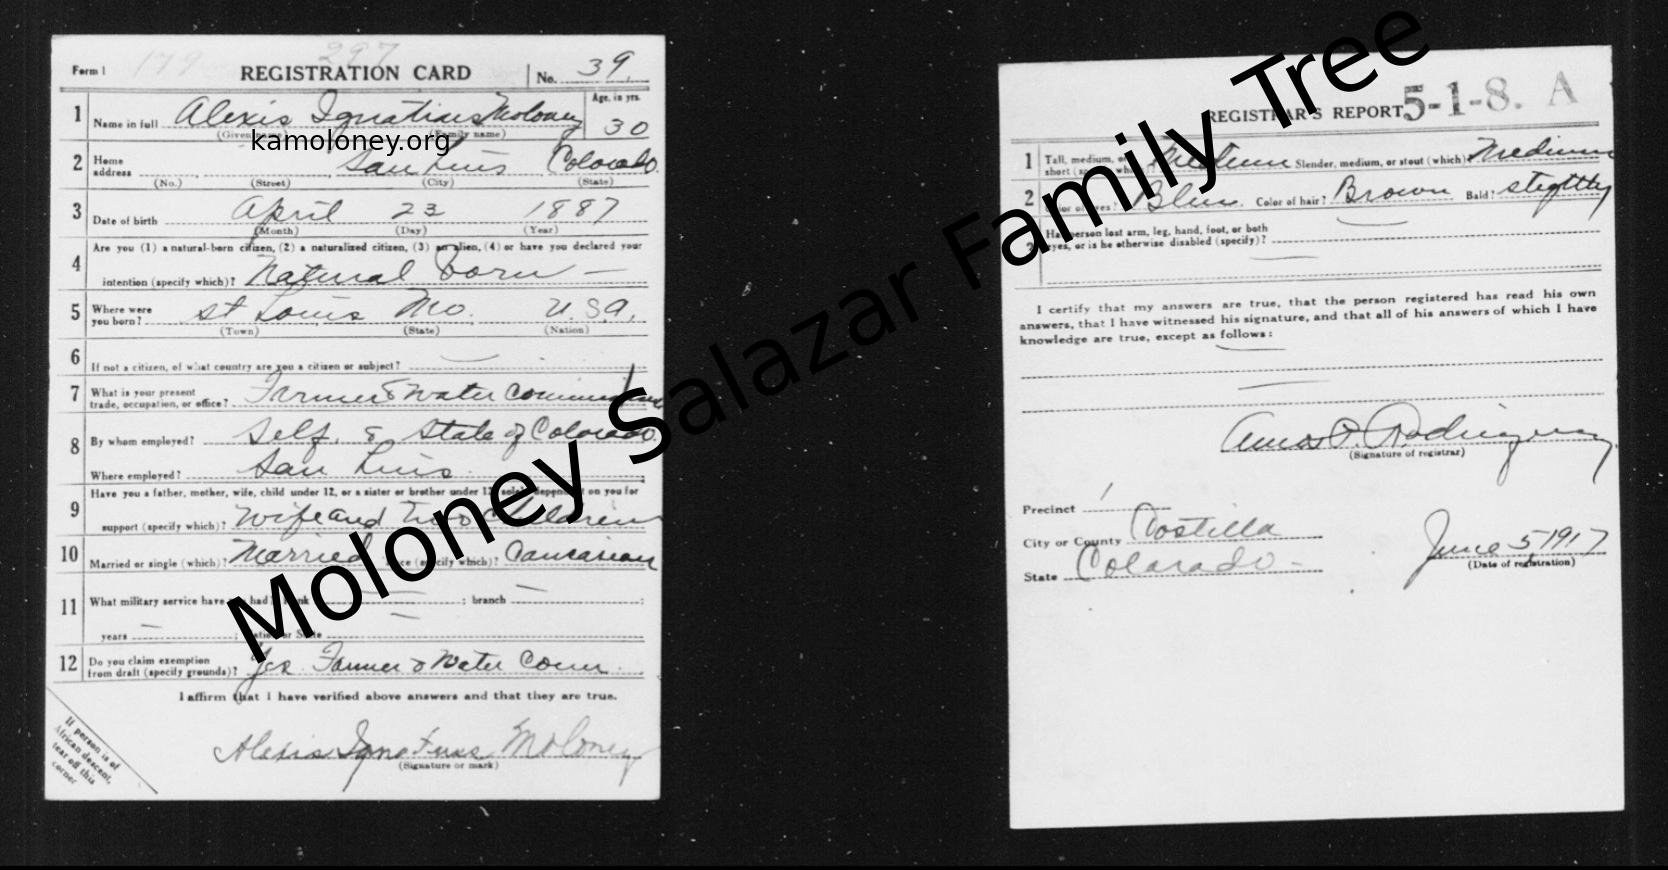 179 297
Form 1 REGISTRATION CARD No. 39
1 Name in full Alexis Ignatius Moloney Age, in yrs. 30
(Given name) (Family name)
kamoloney.org
2 Home address San Luis Colorado
(No.) (Street) (City) (State)
3 Date of birth April 23 1887
(Month) (Day) (Year)
4 Are you (1) a natural-born citizen, (2) a naturalized citizen, (3) an alien, (4) or have you declared your
intention (specify which)? Natural Born —
5 Where were you born? St Louis Mo. U.S.A.
(Town) (State) (Nation)
6 If not a citizen, of what country are you a citizen or subject? —
7 What is your present trade, occupation, or office? Farmer & Water
8 By whom employed? Self. & State of Colorado.
Where employed? San Luis.
9 Have you a father, mother, wife, child under 12, or a sister or brother under 12, solely dependent on you for
support (specify which)? Wife and Two Children
10 Married or single (which)? Married Race (specify which)? Caucasian
11 What military service have you had? Rank — ; branch — ;
years — ; Nation or State —
12 Do you claim exemption from draft (specify grounds)? Yes. Farmer & Water Comm.
I affirm that I have verified above answers and that they are true.
Alexis Ignatius Moloney
(Signature or mark)
If person is of
African descent,
tear off this
corner
Moloney Salazar Family Tree
REGISTRAR'S REPORT 5-1-8. A
1 Tall, medium, or short (specify which)? Medium Slender, medium, or stout (which)? Medium
2 Color of eyes? Blue. Color of hair? Brown Bald? slightly
3 Has person lost arm, leg, hand, foot, or both
eyes, or is he otherwise disabled (specify)? —
I certify that my answers are true, that the person registered has read his own
answers, that I have witnessed his signature, and that all of his answers of which I have
knowledge are true, except as follows:
(Signature of registrar)
Precinct 1
City or County Costilla
State Colorado — June 5, 1917
(Date of registration)